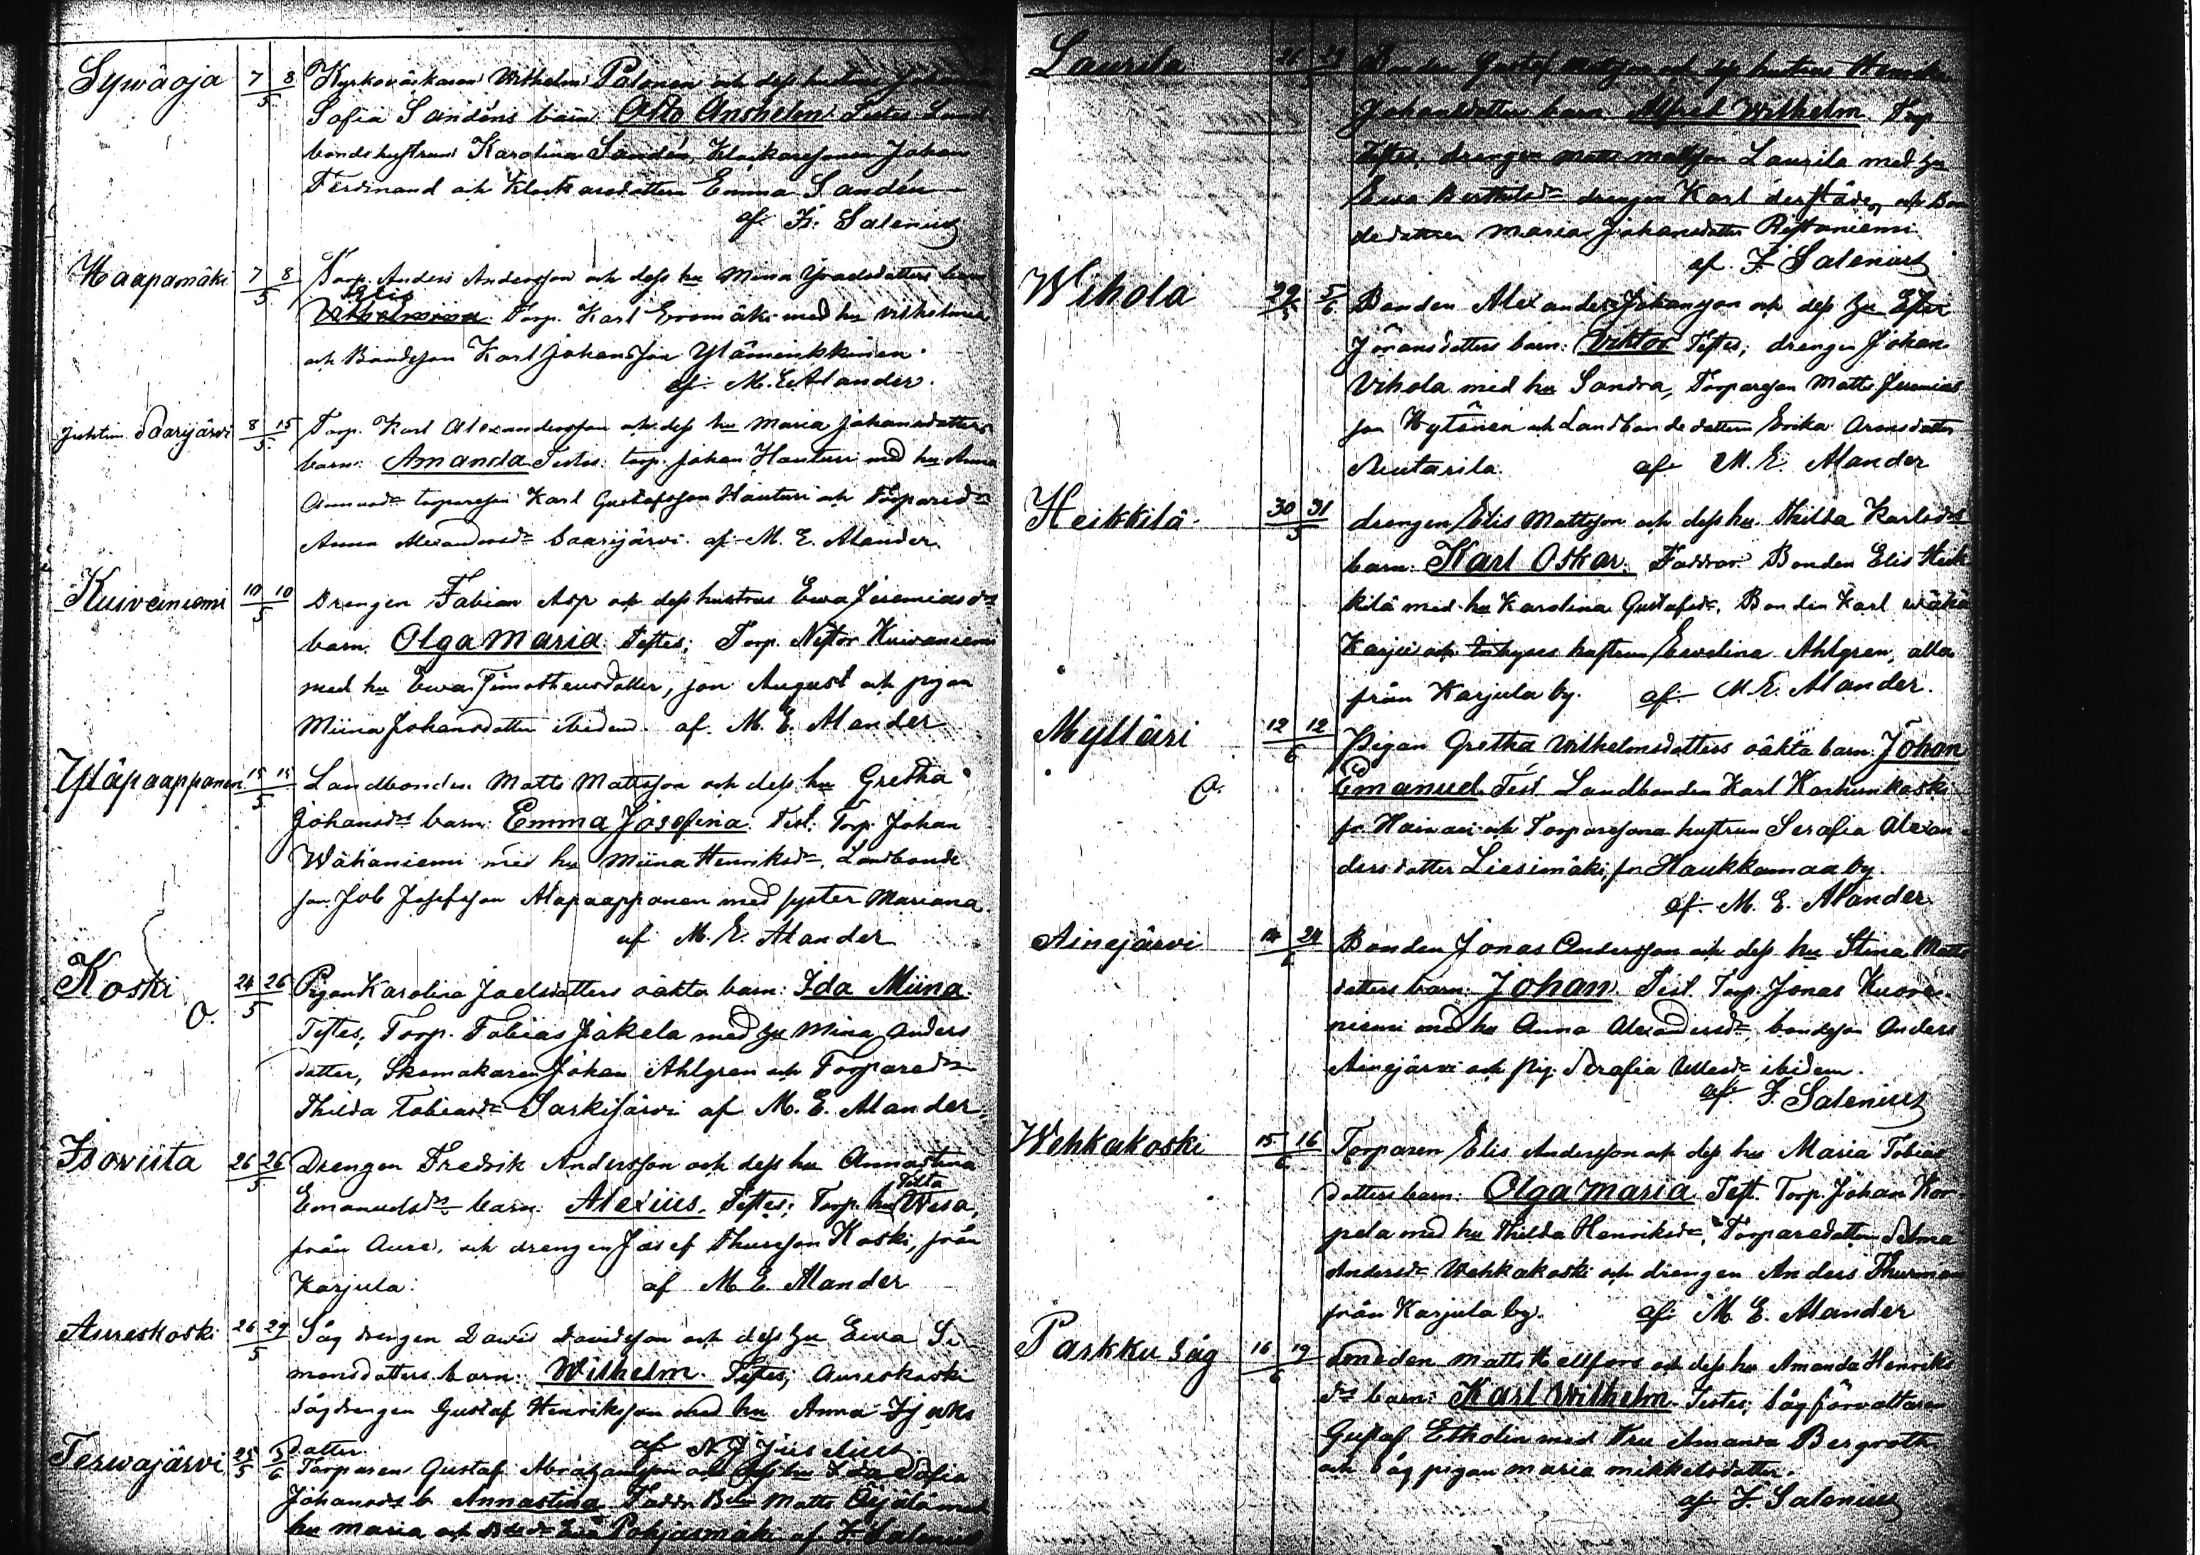 Sywäoja 7 8/5 Kyrkoväktaren Wilhelm Palonen och dess hustrus Johanna
Sofia Sandéns barn: Otto Anshelm. Testes Land
bondehustrun Karolina Sandén, Klockaresonen Johan
Ferdinand och Klockaredottern Emma Sandén
af F. Salenius
Haapamäki 7 8/5 Torp. Anders Andersson och dess hu Mina
Wilhelmina. Torp. Karl Eromäki med hu Vilhelmina
och Bondeson Karl Johansson Ylämeikkinen.
af M. E. Alander.
Saarijärvi 8 15/5 Torp. Karl Alexandersson och dess hu Maria Johansdotters
barn: Amanda Testes: torp. Johan Hauturi med hu Anna
torparesonen Karl Gustafsson Hauturi och Torpared:r
Anna Alexandersd:r Saarijärvi. af M. E. Alander.
Kuiveiniemi 10 10/5 Drengen Fabian Asp och dess hustrus Ewa Jeremiasd:rs
barn. Olga Maria. Testes; Torp. Nestor Kuivaniemi
med hu Ewa Timotheusdotter, son August och pigan
Miina Johansdotter ibidem. af. M. E. Alander
Yläpaappanen 15 15/5 Landbonden Matts Mattsson och dess hu Gretha
Johansd:rs barn: Emma Josefina. Test: Torp. Johan
Wähäniemi med hu Miina Henriksd:r, Landbonde
son Job Josefsson Alapaappanen med syster Mariana.
af M. E. Alander
Koski 24 26/5 Pigan Karolina Joelsdotters oäkta barn: Ida Miina.
O.
Testes; Torp. Tobias Jäkelä med hu Mina Anders
dotter, Skomakaren Johan Ahlgren och Torpared:r
Thilda Tobiasd:r Särkijärvi af M. E. Alander.
Isoviita 26 26/5 Drengen Fredrik Andersson och dess hu Annastina
Emanuelsd:rs barn: Alexius. Testes; Torp. hu Wesa,
från Aure, och drengen Josef Thuresson Koski, från
Karjula. af M. E. Alander
Aureskoski 26 29/5 Såg drengen David Davidsson och dess hu Ewa Si
monsdotters barn: Wilhelm. Testes; Aureskoski
Sågdrengen Gustaf Henriksson med hu Anna Isaks
dotter. af N. J. Juselius.
Terwajärvi 25/5 5/6 Torparen Gustaf Abrahamsson och dess hu Ida Sofia
Johansd:rs b. Annastina
hu Maria och Pohjasmäki af F. Salenius
Laurila Bonden Gustaf Mattsson och dess hustrus
Johansdotters barn Alfred Wilhelm. Torp
Testes, drengen Matts Mattsson Laurila med hu
Ewa drengen Karl derstädes, och Bon
dedottren Maria Johansdotter Ristaniemi
af. F. Salenius
Wihola 29/5 5/6 Bonden Alexander Johansson och dess hu Ester
Göransdotters barn: Viktor Testes; drengen Johan
Vihola med hu Sandra, Torparesonen Matts Jeremias
son Kytönen och Landbondedottern Erika
Rautasila. af M. E. Alander
Heikkilä. 30 31/5 drengen Elis Mattsson och dess hu. Thilda Karlsd:rs
barn: Karl Oskar. Faddrar: Bonden Elis Heik
kilä med hu Karolina Gustafsd:r, Bonden Karl Wähä
Karju och inhyses hustrun Ewelina Ahlgren, alla
från Karjula by. af M. E. Alander.
Mylläri 12 12/6 Pigan Gretha Wilhelmsdotters oäkta barn: Johan
O.
Emanuel. Test. Landbonden Karl Karhunkoski
fr. Hainari och Torparesons hustrun Serafia Alexan
dersdotter Liesimäki, fr. Haukkamaa by.
af. M. E. Alander.
Ainejärvi 14 24/6 Bonden Jonas Andersson och dess hu Stina Matts
dotters barn: Johan. Test. Torp. Jonas Kuore
niemi med hu Anna Alexandersd:r, bondeson Anders
Ainejärvi och pig. Serafia Ullesd:r ibidem.
af F. Salenius
Wehkakoski 15 16/6 Torparen Elis Andersson och dess hu Maria Tobias
dotters barn: Olga Maria. Test. Torp. Johan Kor
pela med hu Thilda Henriksd:r, Torparedottern Selma
Andersd:r Wehkakoski och drengen Anders Thurman
från Karjula by. af M. E. Alander
Parkku såg 16 19/6 Smeden Matts Hellfors och dess hu Amanda Henriks
d:rs barn: Karl Wilhelm. Testes; Sågförvaltaren
Gustaf Etholin med Fru Amanda Bergroth
och Såg pigan Maria Mikkelsdotter.
af F. Salenius